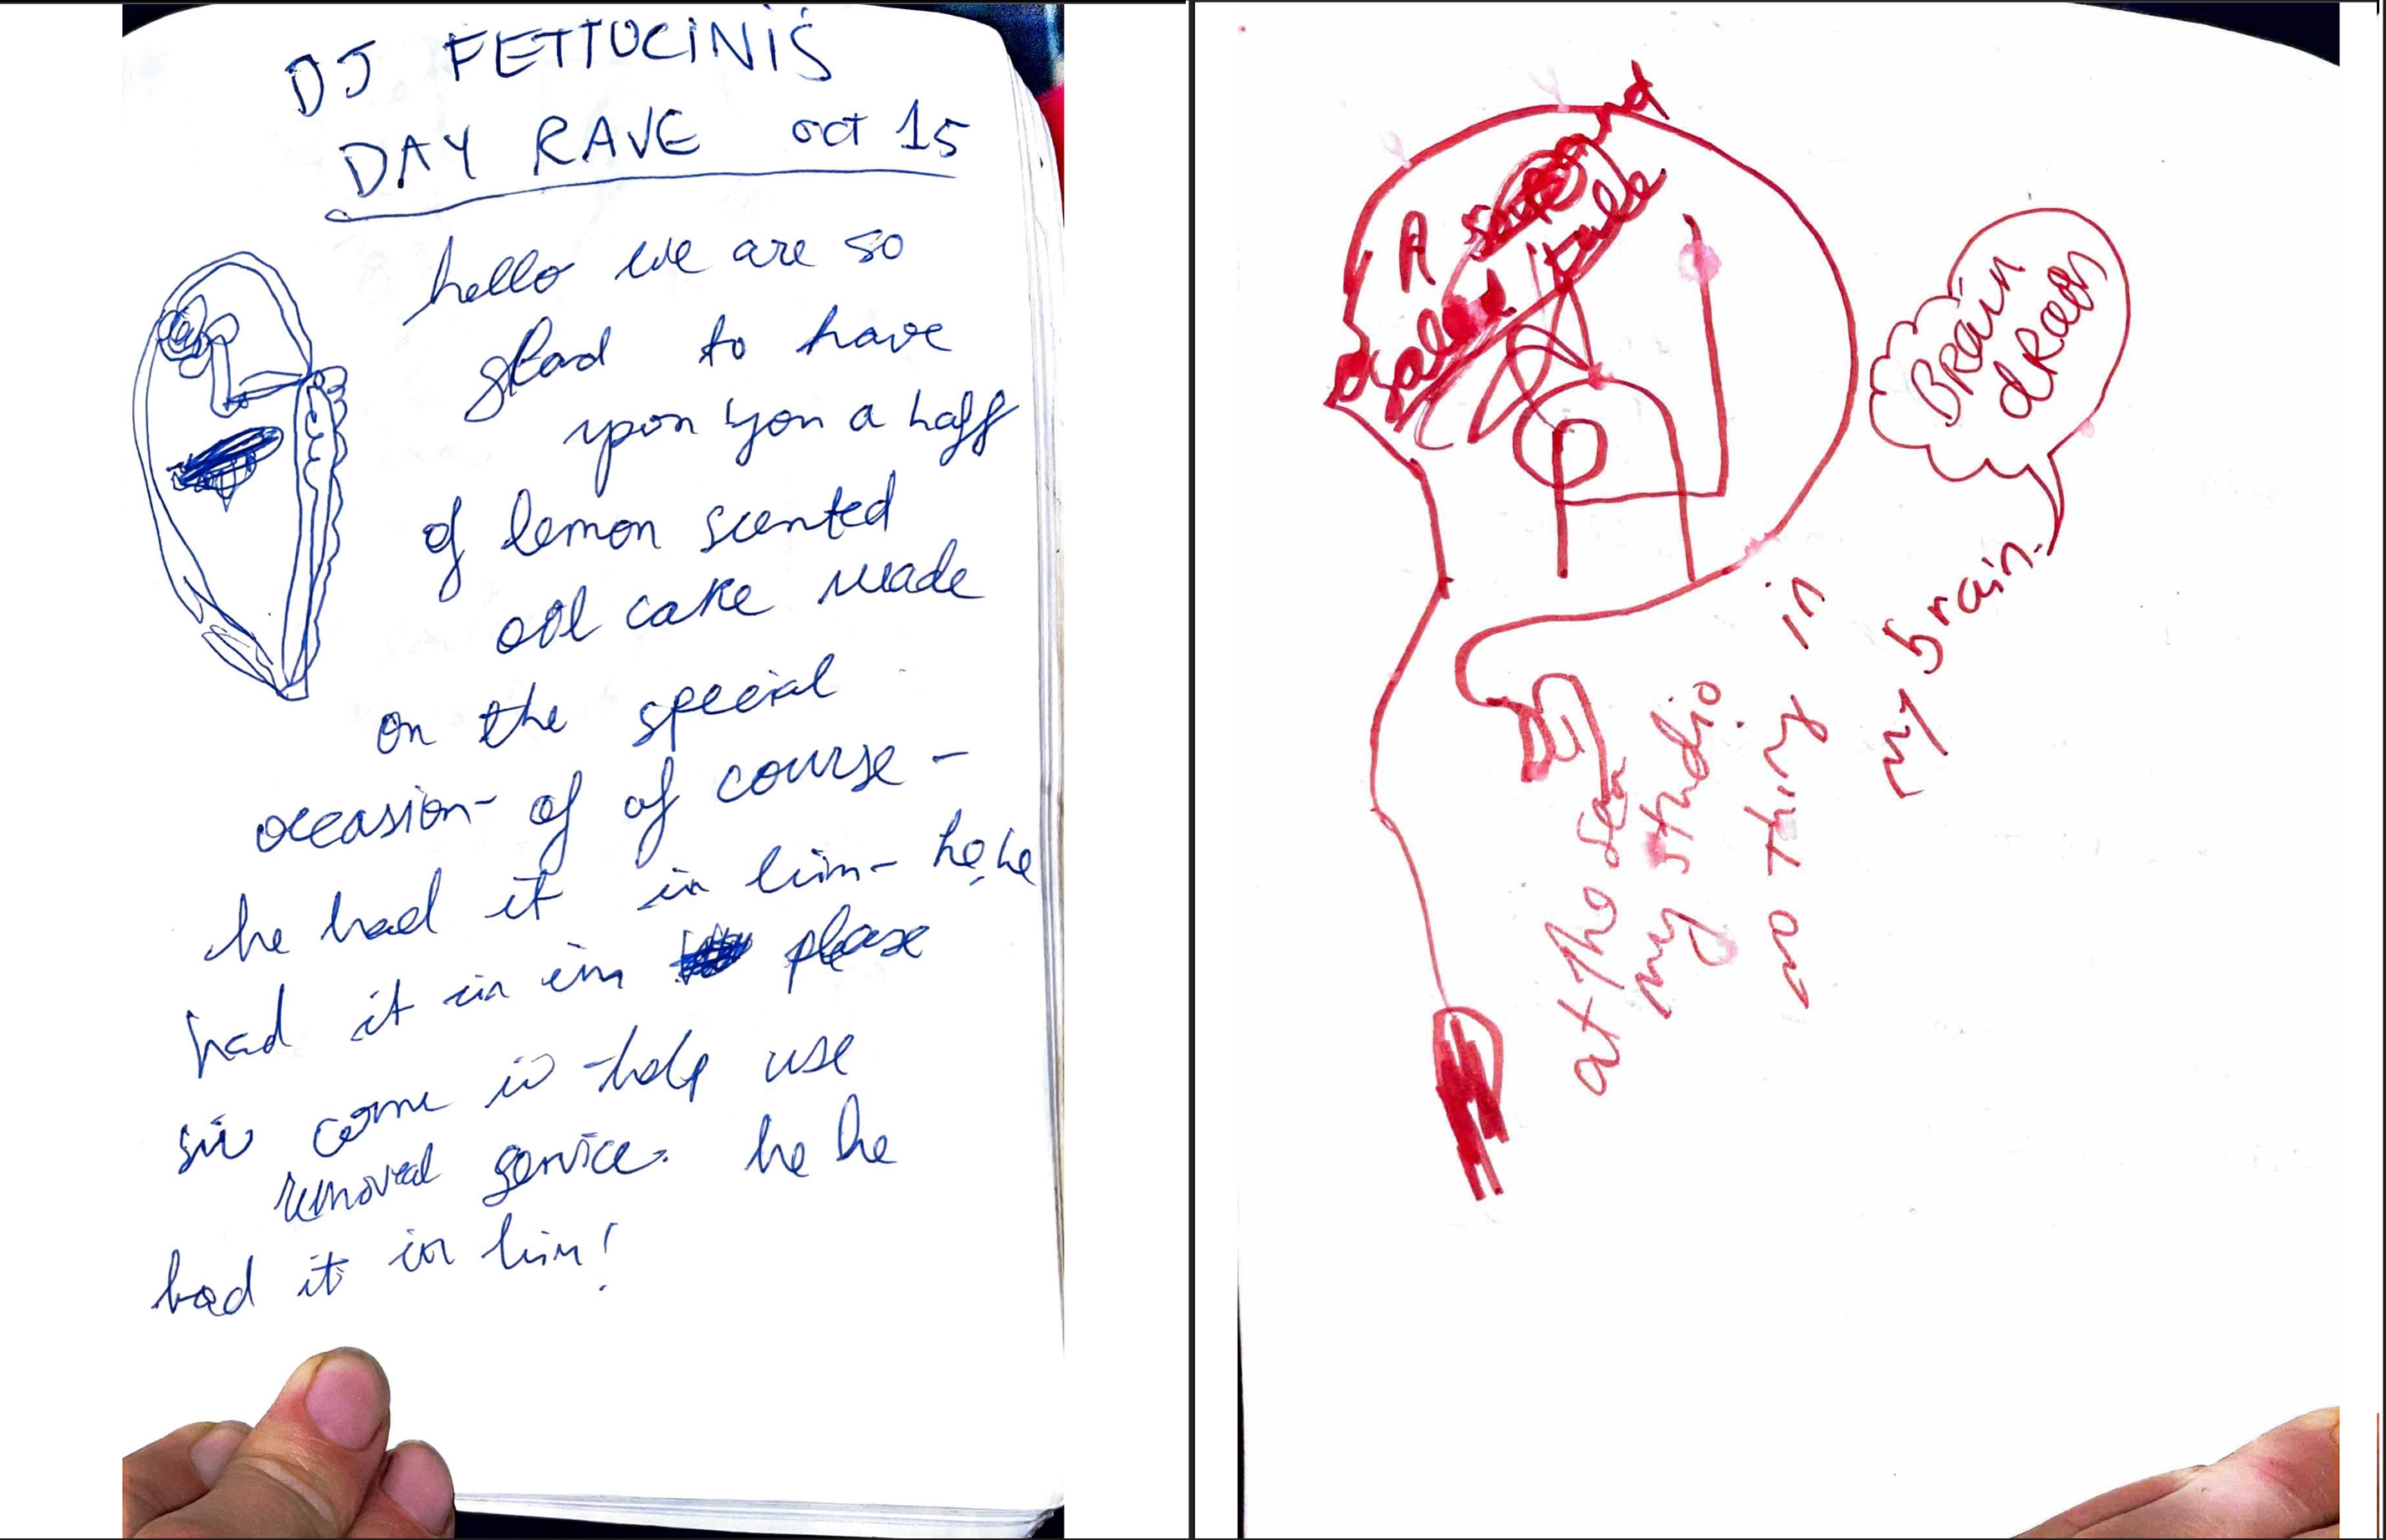 DJ FETTUCINI'S
DAY RAVE oct 15
hello we are so
glad to have
upon you a haff
of lemon scented
oil cake made
on the special
occasion- of of course -
he had it in him- he he
had it in im please
sir come is help use
removal service. he he
had it in him!
A
salad
Brain
drean
at the
my studio
no thing in
my brain.